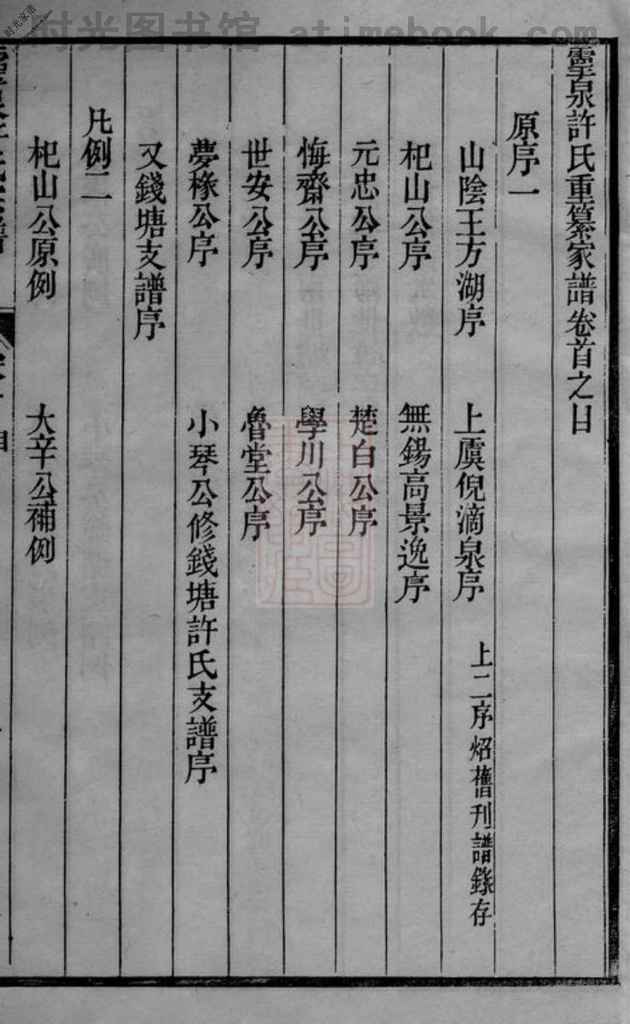 时光图书馆 - atimebook.com
靈泉許氏重纂家譜卷首之目
原序一
山陰王方湖序 上虞倪滴泉序 上二序炤舊刊譜錄存
杞山公序 無錫高景逸序
元忠公序 楚白公序
悔齋公序 學川公序
世安公序 魯堂公序
夢椽公序 小琴公修錢塘許氏支譜序
又錢塘支譜序
凡例二
杞山公原例 大辛公補例